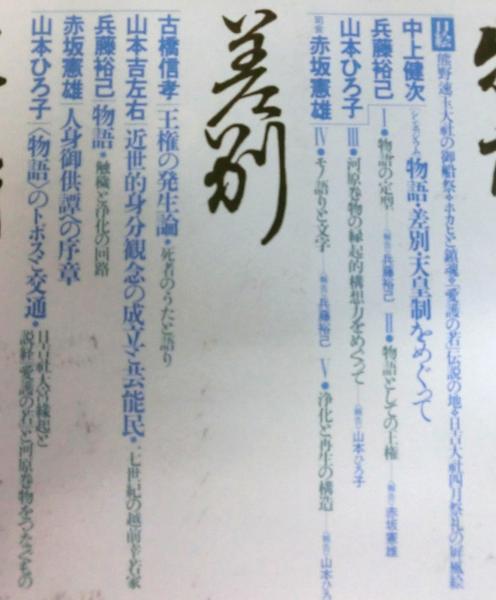 口絵 熊野速玉大社の御船祭・ホカヒと鎮魂・『愛護の若』伝説の地・日吉大社四月祭礼の屏風絵
中上健次
兵藤裕己
山本ひろ子
司会 赤坂憲雄
シンポジウム 物語・差別・天皇制をめぐって
Ⅰ・物語の定型――〈報告〉兵藤裕己 Ⅱ・物語としての王権――〈報告〉赤坂憲雄
Ⅲ・河原巻物の縁起的構想力をめぐって――〈報告〉山本ひろ子
Ⅳ・モノ語りと文字――〈報告〉兵藤裕己 Ⅴ・浄化と再生の構造――〈報告〉山本ひろ
差別
古橋信孝 王権の発生論・死者のうたと語り
山本吉左右 近世的身分観念の成立と芸能民・十七世紀の越前幸若家
兵藤裕己 物語・触穢と浄化の回路
赤坂憲雄 人身御供譚への序章
山本ひろ子 〈物語〉のトポスと交通・日吉社大宮縁起と説経『愛護の若』と河原巻物をつなぐもの